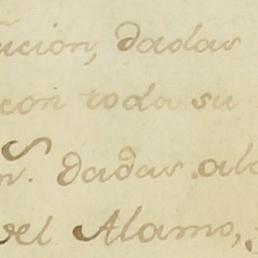 ucion, dadas
con toda su
n. dadas ala
vel Alamo,